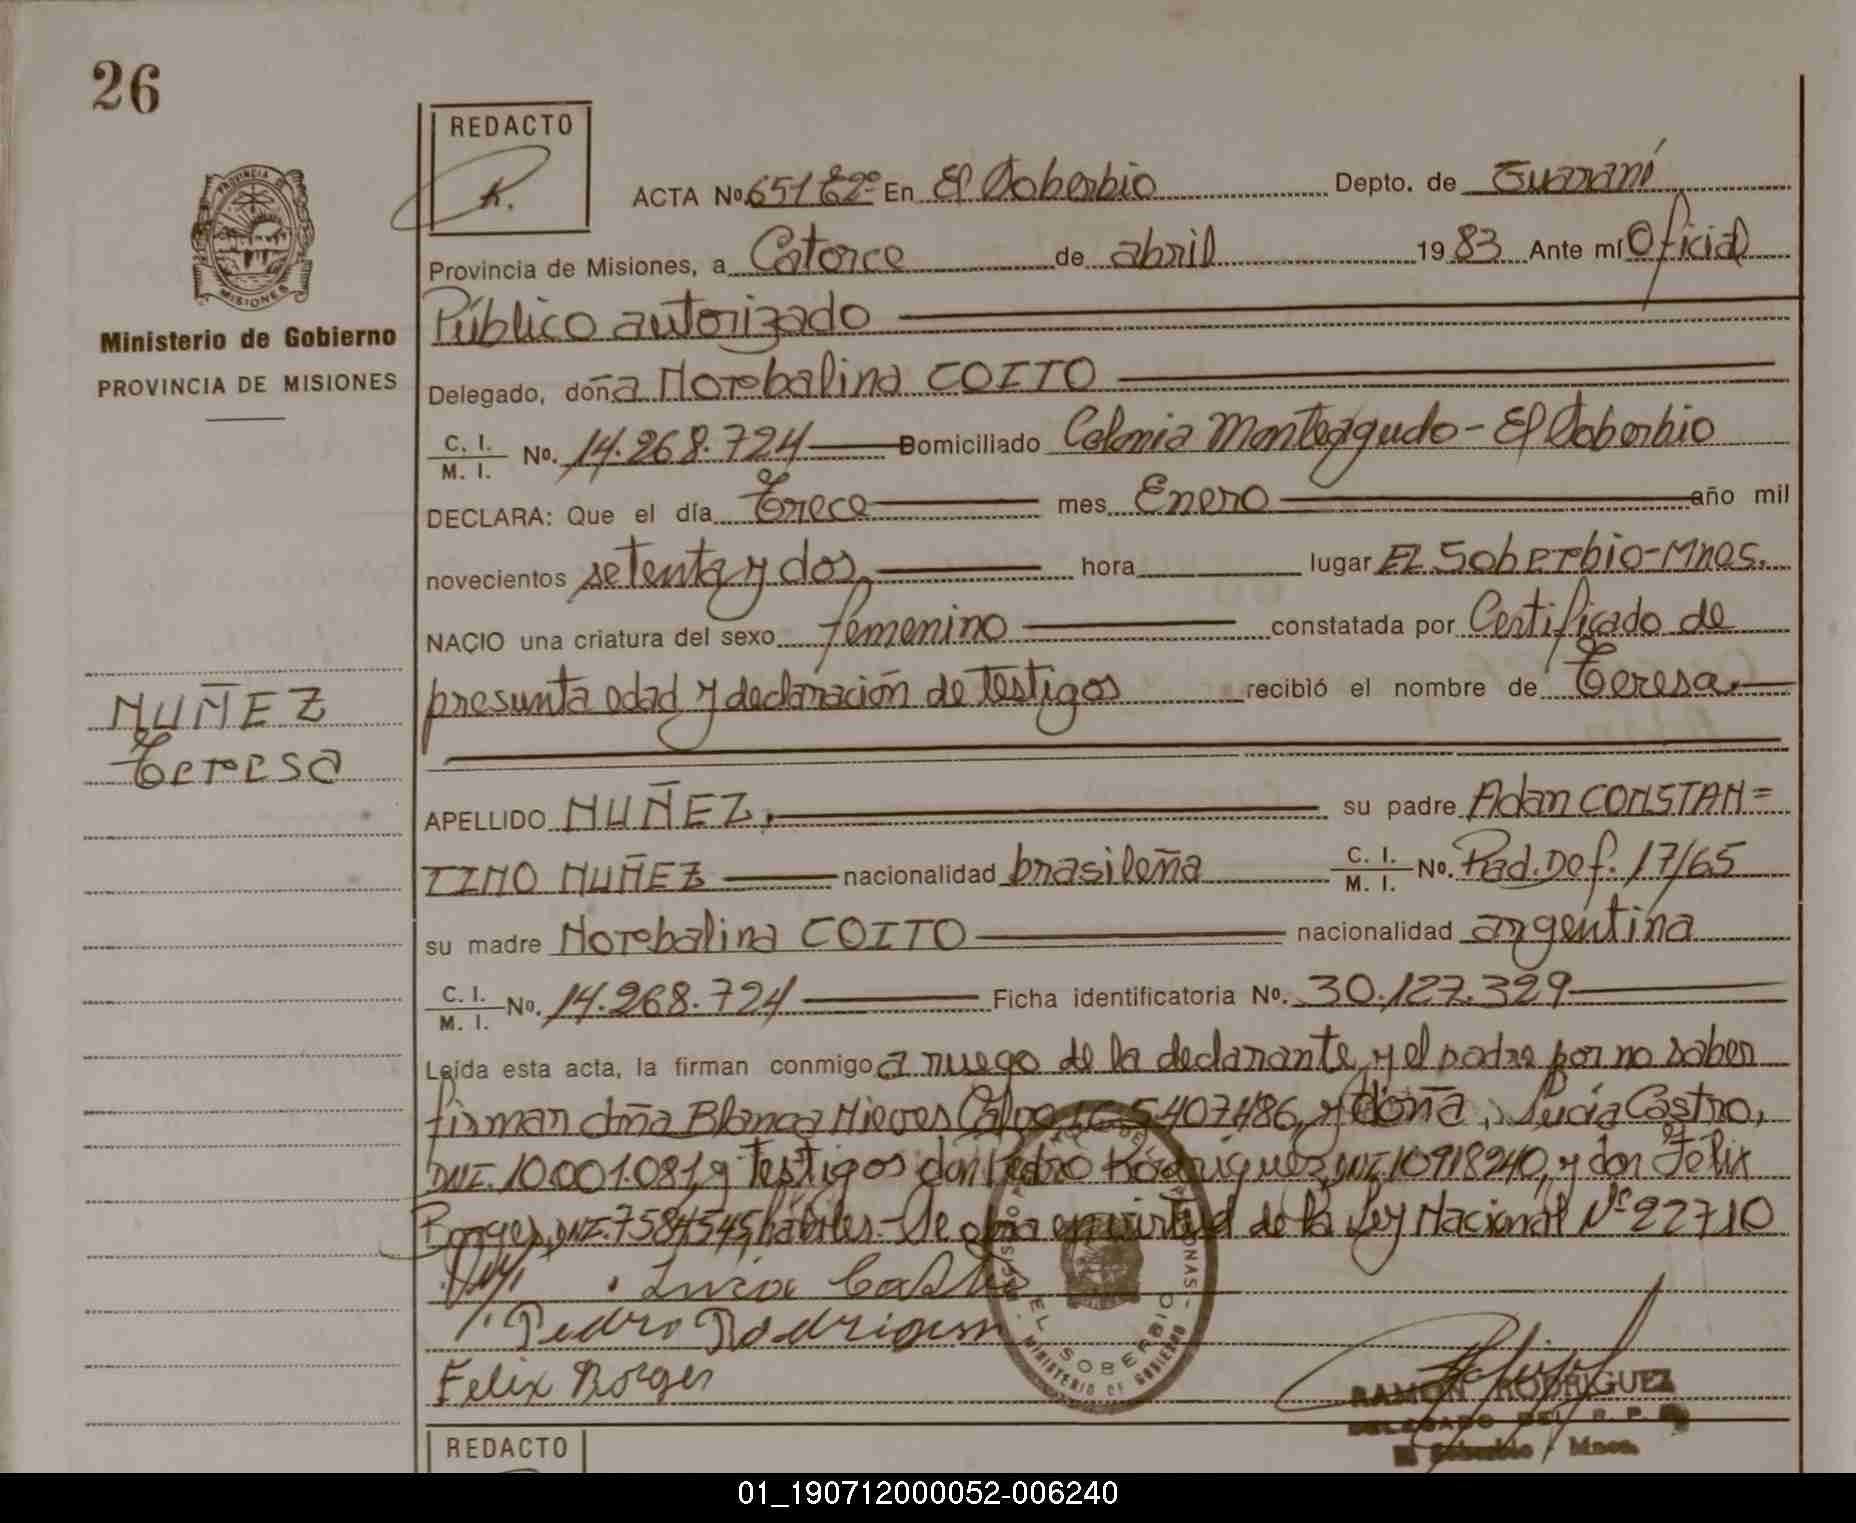 26
REDACTO
R.
ACTA No. 651 t2º En El Soberbio Depto. de Guaraní
Provincia de Misiones, a Catorce de abril 1983 Ante mí Oficial
Público autorizado
PROVINCIA DE
MISIONES
Ministerio de Gobierno
PROVINCIA DE MISIONES
Delegado, doña Norbalina COITO
C. I.
M. I. No. 14.268.724 Domiciliado Colonia Monteagudo - El Soberbio
DECLARA: Que el día Trece mes Enero año mil
novecientos setenta y dos, hora lugar EL Soberbio-Mnes.
NACIO una criatura del sexo femenino constatada por Certificado de
presunta edad y declaración de testigos recibió el nombre de Teresa.
NUÑEZ
Teresa
APELLIDO NUÑEZ, su padre Adan CONSTAN=
TINO NUÑEZ nacionalidad brasileña C. I.
M. I. No. Rad. Def. 17/65
su madre Norbalina COITO nacionalidad argentina
C. I.
M. I. No. 14.268.724 Ficha identificatoria No. 30.127.329
Leída esta acta, la firman conmigo a ruego de la declarante y el padre por no saber
firmar doña Blanca Nieves Calvo 5407486, y doña, Lucía Castro,
DNI. 10.001.081, y testigos don Pedro Rodriguez, DNI. 10918240, y don Félix
Borges, DNI. 7584545, hábiles.- Se obra en virtud de la Ley Nacional Nº 22710
Lucia Castro
Pedro Rodriguez
Felix Borges
EL SOBERBIO
MINISTERIO DE GOBIERNO
RAMON RODRIGUEZ
DELEGADO DEL R. P.
El Soberbio - Mnes.
REDACTO
01_190712000052-006240